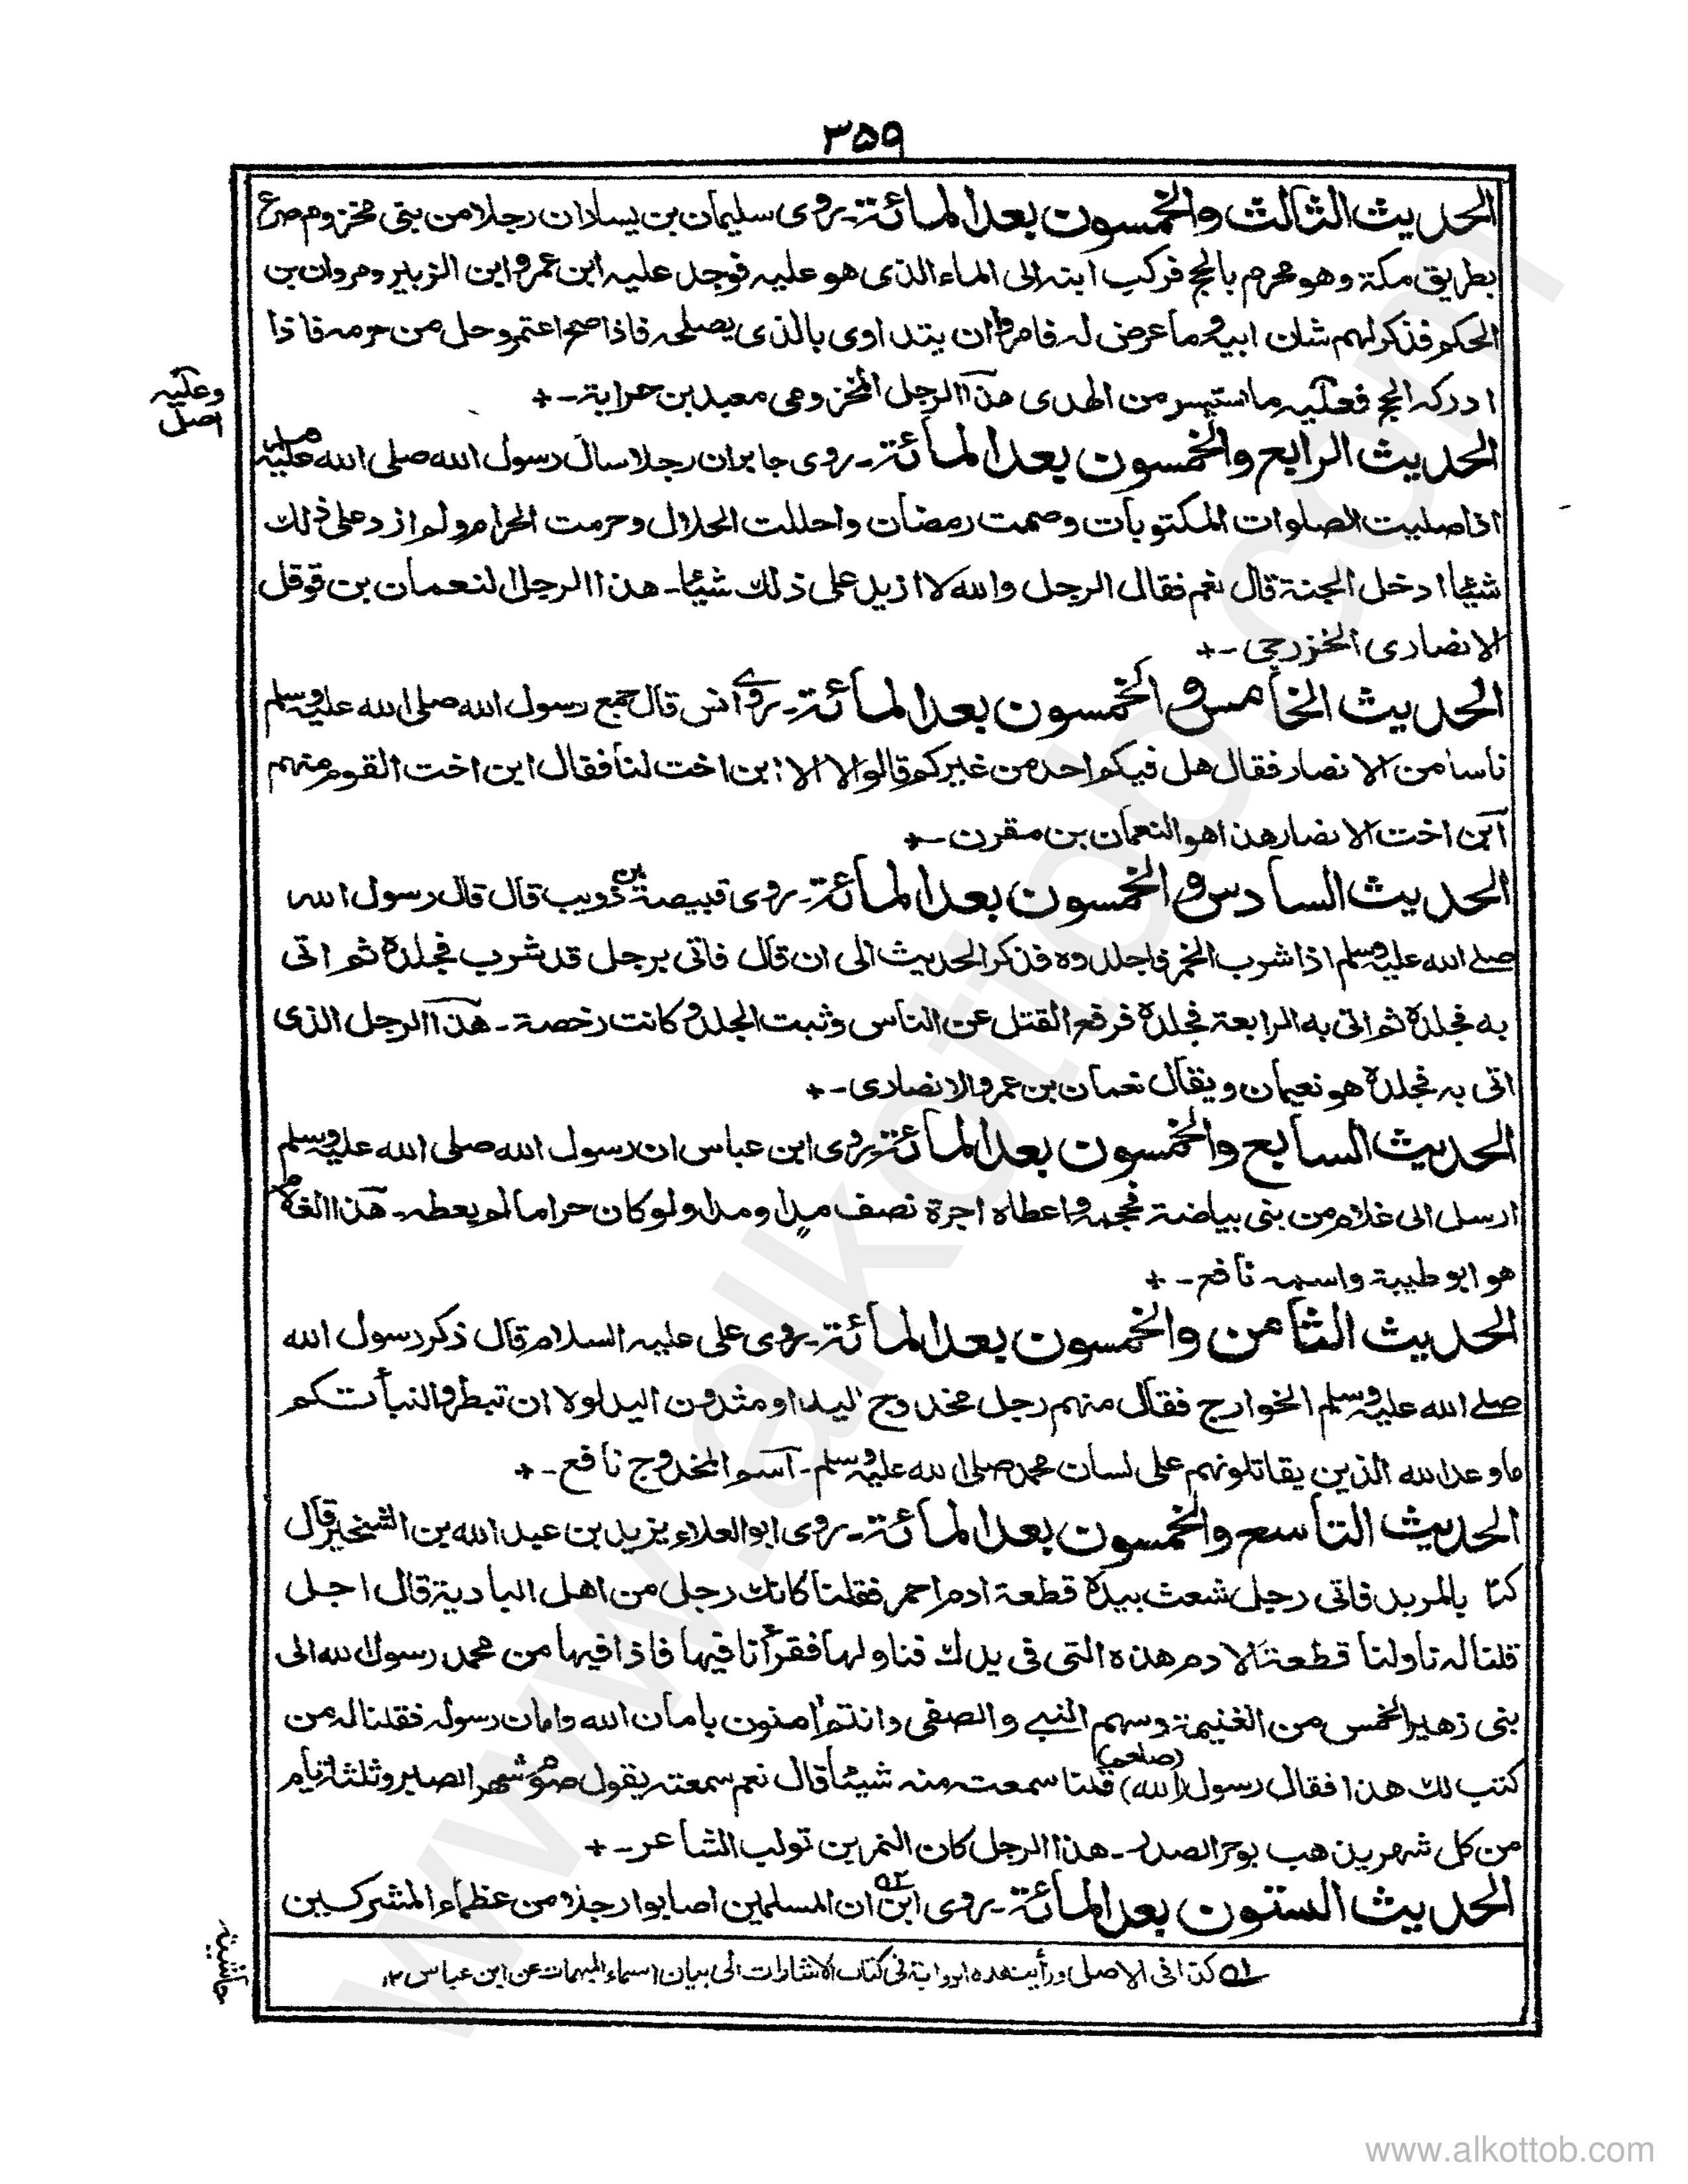 ٣٥٩
الحديث الثالث والخمسون بعد المائة ـ روى سليمان بن يسار ان رجلا من بنى مخزوم صرع
بطريق مكة وهو محرم بالحج فركب ابنه الى الماء الذى هو عليه فوجد عليه ابن عمر وابن الزبير ومروان بن
الحكم فذكر لهم شان ابيه وما عرض له فامروا ان يتداوى بالذى يصلحه فاذا صح اعتمر وحل من حرمه فاذا
ادركه الحج فعليه ما استيسر من الهدى هذا الرجل المخزومى معبد بن حرابة ـ +
وعليه
اصل
الحديث الرابع والخمسون بعد المائة ـ روى جابر ان رجلا سال رسول الله صلى الله عليه وسلم
اذا صليت الصلوات المكتوبات وصمت رمضان واحللت الحلال وحرمت الحرام ولم ازد على ذلك
شيئا ادخل الجنة قال نعم فقال الرجل والله لا ازيد على ذلك شيئا ـ هذا الرجل النعمان بن قوقل
الانصارى الخزرجى ـ +
الحديث الخامس والخمسون بعد المائة ـ روى انس قال جمع رسول الله صلى الله عليه وسلم
ناسا من الانصار فقال هل فيكم احد من غيركم قالوا لا الا ابن اخت لنا فقال ابن اخت القوم منهم
ابن اخت الانصار هذا هو النعمان بن مقرن ـ +
الحديث السادس والخمسون بعد المائة ـ روى قبيصة بن ذويب قال قال رسول الله
صلى الله عليه وسلم اذا شرب الخمر فاجلدوه فذكر الحديث الى ان قال فاتى برجل قد شرب فجلده ثم اتى
به فجلده ثم اتى به الرابعة فجلده فرفع القتل عن الناس وثبت الجلد وكانت رخصة ـ هذا الرجل الذى
اتى به فجلده هو نعيمان ويقال نعمان بن عمرو الانصارى ـ +
الحديث السابع والخمسون بعد المائة ـ روى ابن عباس ان رسول الله صلى الله عليه وسلم
ارسل الى غلام من بنى بياضة فحجمه واعطاه اجرة نصف مد او مدا ولو كان حراما لم يعطه ـ هذا الغلام
هو ابو طيبة واسمه نافع ـ +
الحديث الثامن والخمسون بعد المائة ـ روى على عليه السلام قال ذكر رسول الله
صلى الله عليه وسلم الخوارج فقال منهم رجل مخدوج اليد او مثدون اليد لولا ان تبطروا لنبأتكم
ما وعد الله الذين يقاتلونهم على لسان محمد صلى الله عليه وسلم ـ اسم المخدوج نافع ـ +
الحديث التاسع والخمسون بعد المائة ـ روى ابو العلاء يزيد بن عبد الله بن الشخير قال
كنا بالمربد فاتى رجل شعث بيده قطعة ادم احمر فقلنا كانك رجل من اهل البادية قال اجل
قلنا له ناولنا قطعة الادم هذه التى فى يدك فناولها فقرأنا فيها فاذا فيها من محمد رسول الله الى
بنى زهير الخمس من الغنيمة وسهم النبى والصفى وانتم امنون بامان الله وامان رسوله فقلنا له من
كتب لك هذا فقال رسول (الله) (صلعم) قلنا سمعت منه شيئا قال نعم سمعته يقول صوم شهر الصبر وثلثة ايام
من كل شهر يذهب بوحر الصدر ـ هذا الرجل كان النمر بن تولب الشاعر ـ +
الحديث الستون بعد المائة ـ روى ابن ان المسلمين اصابوا رجلا من عظماء المشركين
حاشية
كذا فى الاصل ورأيت هذه الرواية فى كتاب الاشارات الى بيان اسماء المبهمات عن ابن عباس ١٢
www.alkottob.com
www.alkottob.com